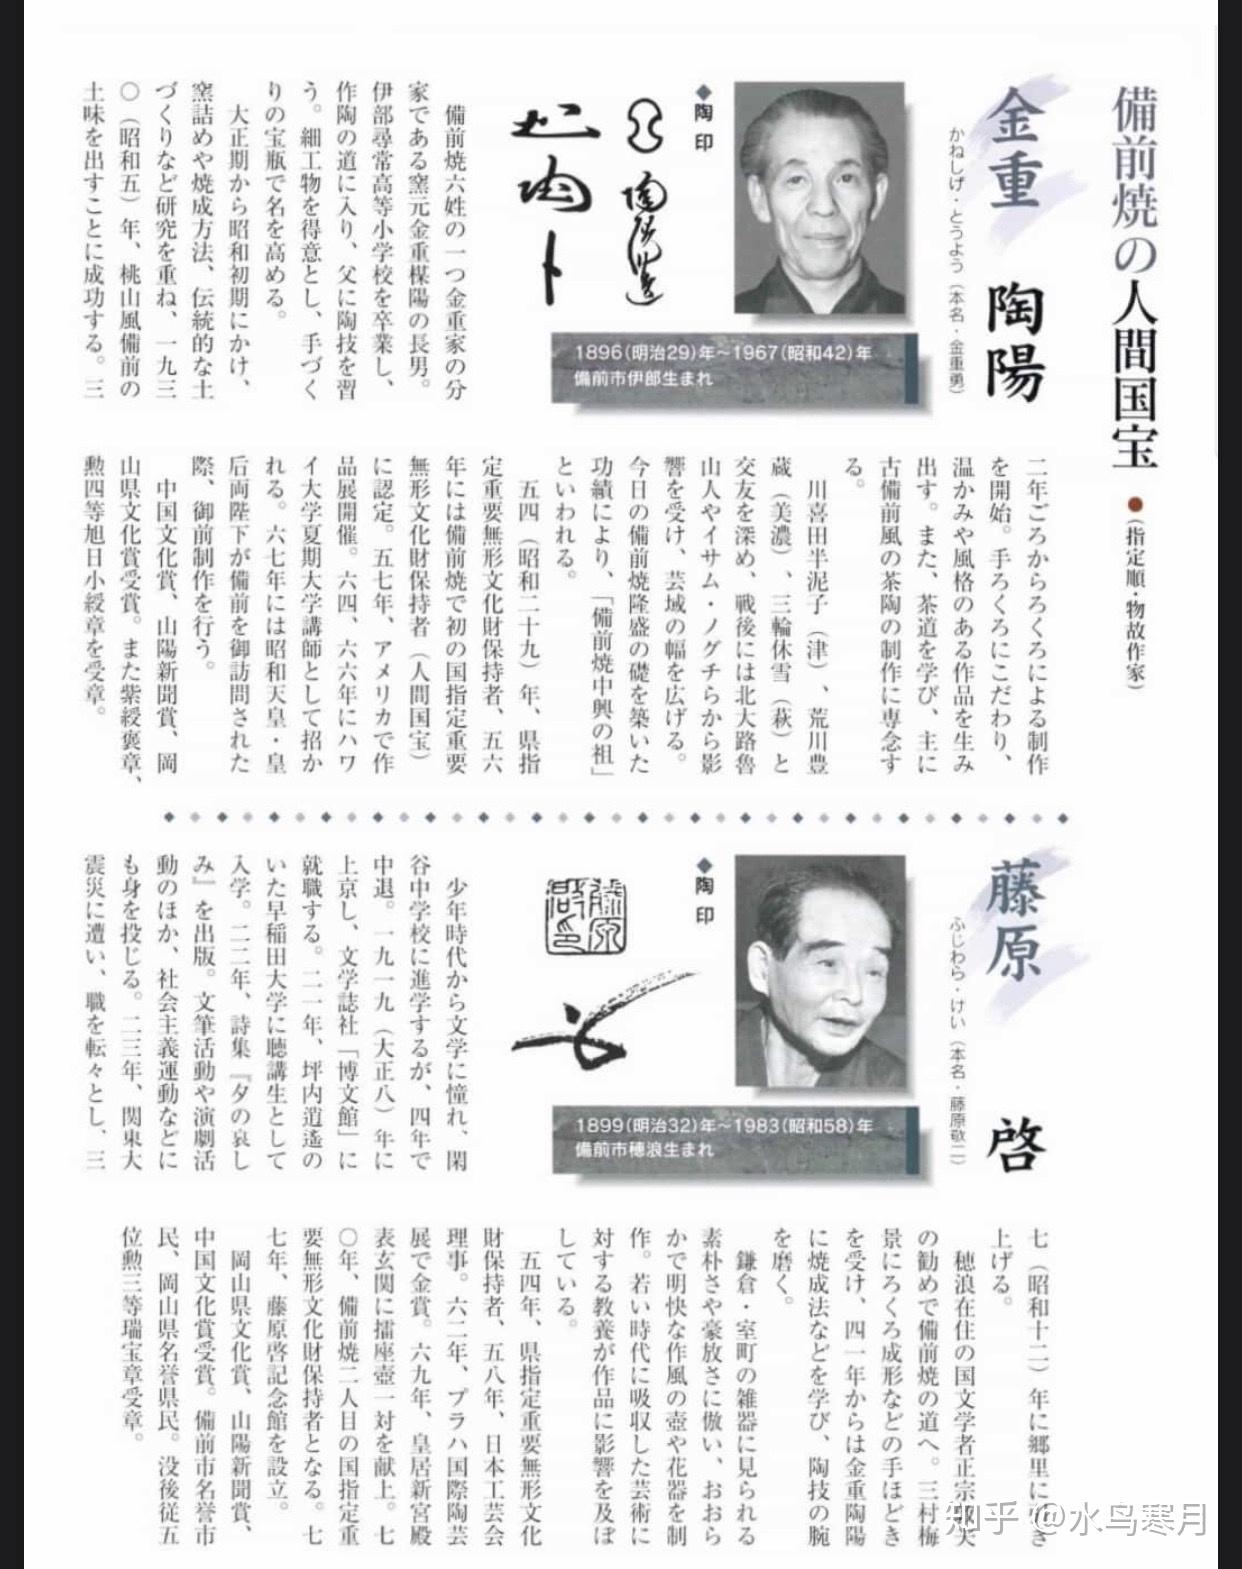 備前焼の人間国宝
●(指定順・物故作家)
金重 陶陽
かねしげ・とうよう(本名・金重勇)
◆陶印
1896(明治29)年〜1967(昭和42)年
備前市伊部生まれ
備前焼六姓の一つ金重家の分
家である窯元金重楳陽の長男。
伊部尋常高等小学校を卒業し、
作陶の道に入り、父に陶技を習
う。細工物を得意とし、手づく
りの宝瓶で名を高める。
大正期から昭和初期にかけ、
窯詰めや焼成方法、伝統的な土
づくりなど研究を重ね、一九三
〇(昭和五)年、桃山風備前の
土味を出すことに成功する。三
二年ごろからろくろによる制作
を開始。手ろくろにこだわり、
温かみや風格のある作品を生み
出す。また、茶道を学び、主に
古備前風の茶陶の制作に専念す
る。
川喜田半泥子(津)、荒川豊
蔵(美濃)、三輪休雪(萩)と
交友を深め、戦後には北大路魯
山人やイサム・ノグチらから影
響を受け、芸域の幅を広げる。
今日の備前焼隆盛の礎を築いた
功績により、「備前焼中興の祖」
といわれる。
五四(昭和二十九)年、県指
定重要無形文化財保持者、五六
年には備前焼で初の国指定重要
無形文化財保持者(人間国宝)
に認定。五七年、アメリカで作
品展開催。六四、六六年にハワ
イ大学夏期大学講師として招か
れる。六七年には昭和天皇・皇
后両陛下が備前を御訪問された
際、御前制作を行う。
中国文化賞、山陽新聞賞、岡
山県文化賞受賞。また紫綬褒章、
勲四等旭日小綬章を受章。
藤原 啓
ふじわら・けい(本名・藤原敬二)
◆陶印
藤原
啓印
1899(明治32)年〜1983(昭和58)年
備前市穂浪生まれ
少年時代から文学に憧れ、閑
谷中学校に進学するが、四年で
中退。一九一九(大正八)年に
上京し、文学誌社「博文館」に
就職する。二一年、坪内逍遙の
いた早稲田大学に聴講生として
入学。二二年、詩集『夕の哀し
み』を出版。文筆活動や演劇活
動のほか、社会主義運動などに
も身を投じる。二三年、関東大
震災に遭い、職を転々とし、三
七(昭和十二)年に郷里に引き
上げる。
穂浪在住の国文学者正宗敦夫
の勧めで備前焼の道へ。三村梅
景にろくろ成形などの手ほどき
を受け、四一年からは金重陶陽
に焼成法などを学び、陶技の腕
を磨く。
鎌倉・室町の雑器に見られる
素朴さや豪放さに倣い、おおら
かで明快な作風の壺や花器を制
作。若い時代に吸収した芸術に
対する教養が作品に影響を及ぼ
している。
五四年、県指定重要無形文化
財保持者、五八年、日本工芸会
理事。六二年、プラハ国際陶芸
展で金賞。六九年、皇居新宮殿
表玄関に擂座壺一対を献上。七
〇年、備前焼二人目の国指定重
要無形文化財保持者となる。七
七年、藤原啓記念館を設立。
岡山県文化賞、山陽新聞賞、
中国文化賞受賞。備前市名誉市
民、岡山県名誉県民。没後従五
位勲三等瑞宝章受章。
知乎 @水鸟寒月